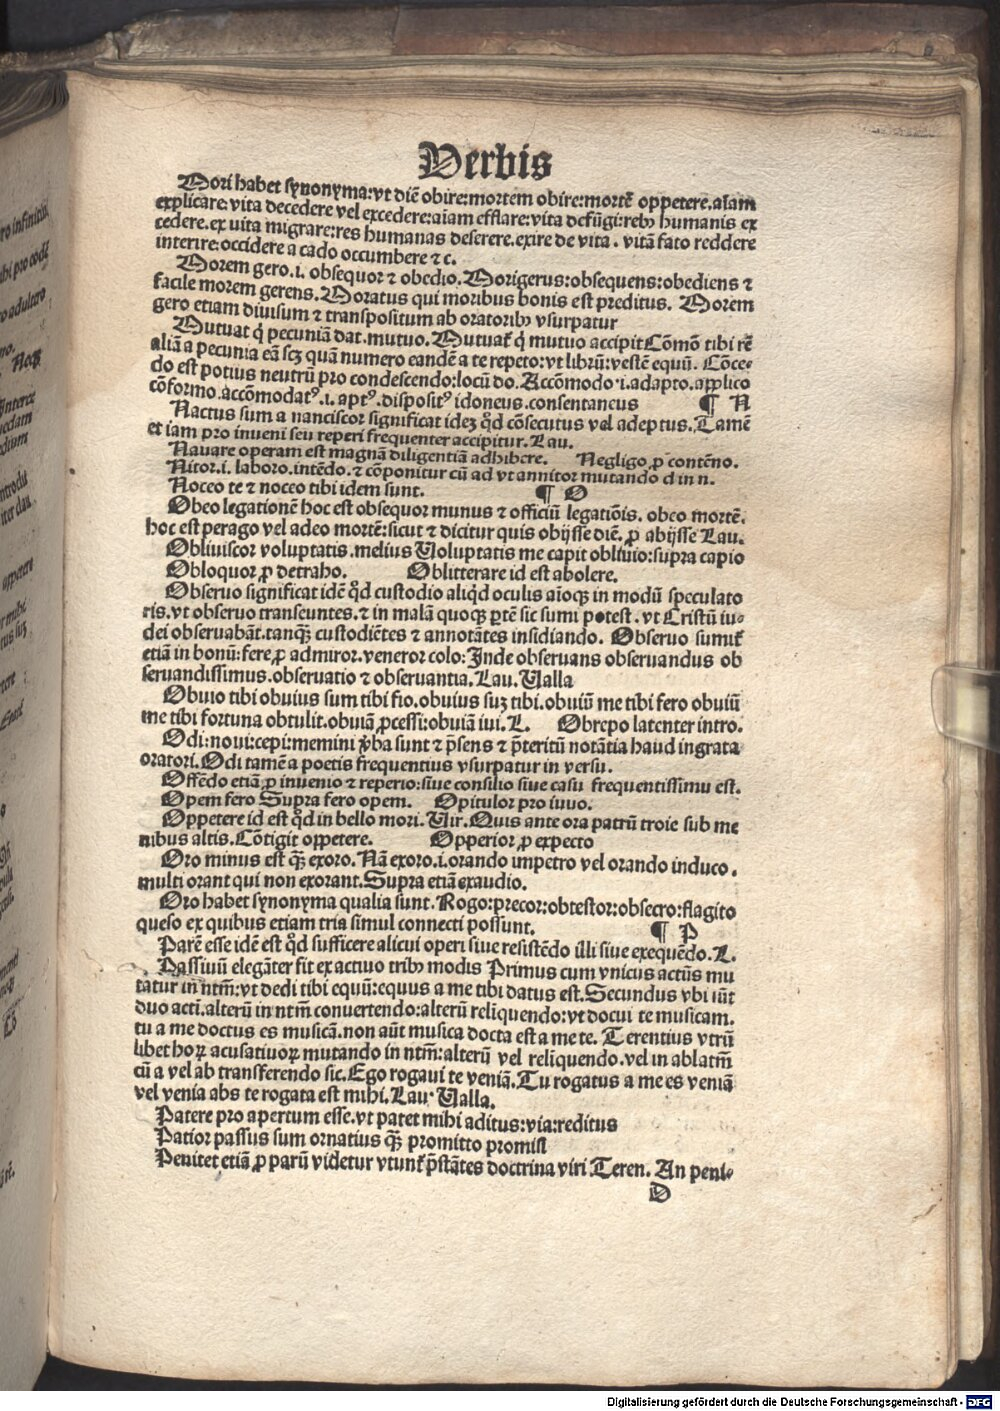 Verbis
Mori habet synonyma:vt diē obire:mortem obire:mortē oppetere.aīam
explicare:vita decedere vel excedere:aīam efflare:vita defūgi:rebꝰ humanis ex
cedere.ex vita migrare:res humanas deserere.exire de vita . vitā fato reddere
interire:occidere a cado occumbere ⁊ c.
Morem gero.i. obsequor ⁊ obedio.Morigerus:obsequens:obediens ⁊
facile morem gerens.Moratus qui moribus bonis est preditus. Morem
gero etiam diuisum ⁊ transpositum ab oratoribꝰ vsurpatur
Mutuat q̇ pecuniā dat.mutuo.Mutuaṫ q̇ mutuo accipit Cōmō tibi rē
aliā a pecunia eā scꝫ quā numero eandē a te repeto:vt librū:vestē equū. Cōce-
do est potius neutrū pro condescendo:locū do.Accōmodo.i.adapto.applico
cōformo.accōmodatꝰ.i.aptꝰ.dispositꝰ idoneus.consentaneus ¶ N
Nactus sum a nanciscor significat ideꝫ qd̓ cōsecutus vel adeptus.Tamē
et iam pro inueni seu reperi frequenter accipitur.Lau.
Nauare operam est magnā diligentiā adhibere. Negligo ꝓ contēno.
Nitor.i. laboro.intēdo.⁊ cōponitur cū ad vt annitor mutando d in n.
Noceo te ⁊ noceo tibi idem sunt. ¶ O
Obeo legationē hoc est obsequor munus ⁊ officiū legatiōis. obeo mortē.
hoc est perago vel adeo mortē:sicut ⁊ dicitur quis obijsse diē.ꝓ abijsse Lau.
Obliuiscor voluptatis.melius Voluptatis me capit obliuio:supra capio
Obloquor ꝓ detraho. Oblitterare id est abolere.
Obseruo significat idē qd̓ custodio aliqd̓ oculis aīoqꝫ in modū speculato
ris.vt obseruo transeuntes.⁊ in malā quoqꝫ ꝑtē sic sumi potest . vt Cristū iu-
dei obseruabāt.tanqꝫ custodiētes ⁊ annotātes insidiando. Obseruo sumiṫ
etiā in bonū:fere ꝓ admiror.veneror colo:Inde obseruans obseruandus ob
seruandissimus.obseruatio ⁊ obseruantia.Lau.Valla
Obuio tibi obuius sum tibi fio.obuius suꝫ tibi.obuiū me tibi fero obuiū
me tibi fortuna obtulit.obuiā ꝓcessi:obuiā iui.L. Obrepo latenter intro.
Odi:noui:cepi:memini v̓ba sunt ⁊ p̄sens ⁊ p̄teritū notātia haud ingrata
oratori.Odi tamē a poetis frequentius vsurpatur in versu.
Offēdo etiā ꝓ inuenio ⁊ reperio:siue consilio siue casu frequentissimu est.
Opem fero Supra fero opem. Opitulor pro iuuo.
Oppetere id est qd̓ in bello mori.Vir.Quis ante ora patrū troie sub me
nibus altis.Cōtigit oppetere. Opperior ꝓ expecto
Oro minus est qꝫ̄ exoro.Nā exoro.i.orando impetro vel orando induco.
multi orant qui non exorant.Supra etiā exaudio.
Oro habet synonyma qualia sunt.Rogo:p̄cor:obtestor:obsecro:flagito
queso ex quibus etiam tria simul connecti possunt. ¶ P
Parē esse idē est qd̓ sufficere alicui operi siue resistēdo illi siue exequēdo.L.
Passiuū elegāter fit ex actiuo tribꝰ modis Primus cum vnicus actūs mu
tatur in ntm̄:vt dedi tibi equū:equus a me tibi datus est.Secundus vbi iūt
duo acti.alterū in ntm̄ conuertendo:alterū relīquendo:vt docui te musicam.
tu a me doctus es musicā.non aūt musica docta est a me te. Terentius vtrū
libet hoꝝ acusatiuoꝝ mutando in ntm̄:alterū vel relīquendo.vel in ablatm̄
cū a vel ab transferendo sic.Ego rogaui te veniā.Tu rogatus a me es veniā
vel venia abs te rogata est mihi.Lau.Valla.
Patere pro apertum esse.vt patet mihi aditus:via:reditus
Patior passus sum ornatius qꝫ̄ promitto promisi
Penitet etiā ꝓ parū videtur vtunṫ p̄stātes doctrina viri Teren. An peni-
D
Digitalisierung gefördert durch die Deutsche Forschungsgemeinschaft - DFG